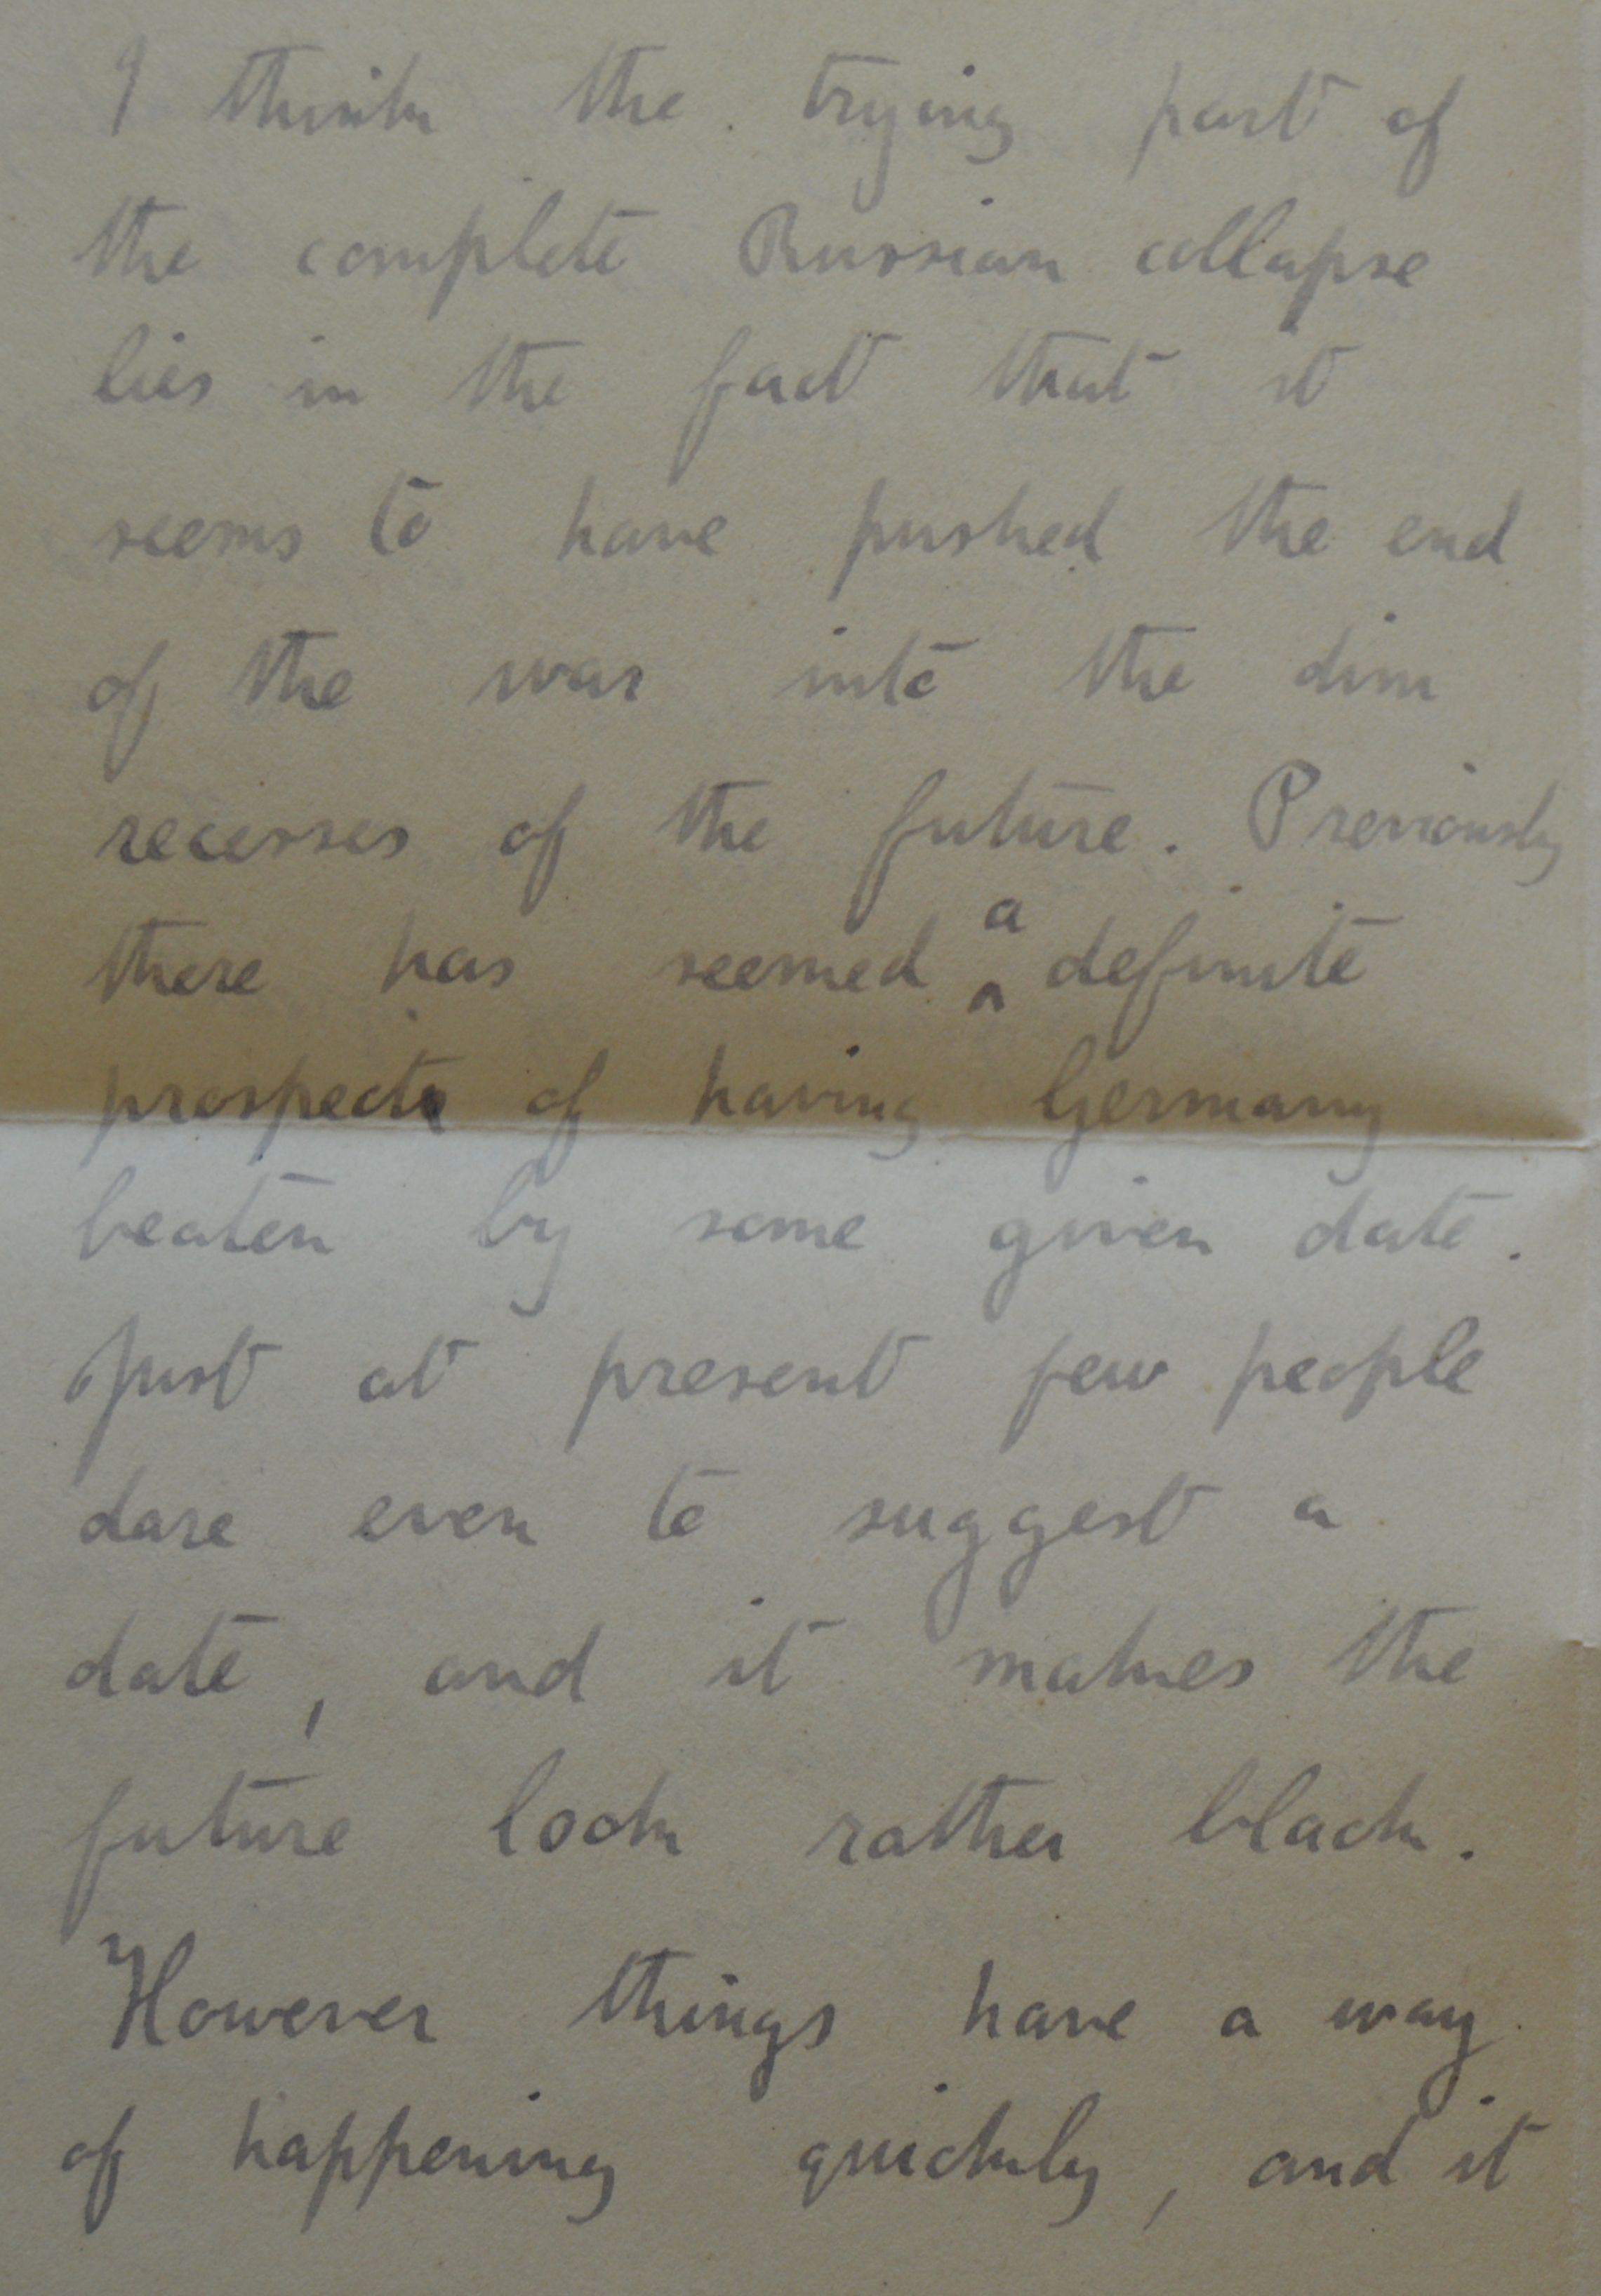 I think the trying part of
the complete Russian collapse
lies in the fact that it
seems to have pushed the end
of the war into the dim
recesses of the future. Previously
there has seemed a definite
prospect of having Germany
beaten by some given date.
Just at present few people
dare even to suggest a
date, and it makes the
future look rather black.
However things have a way
of happening quickly, and it